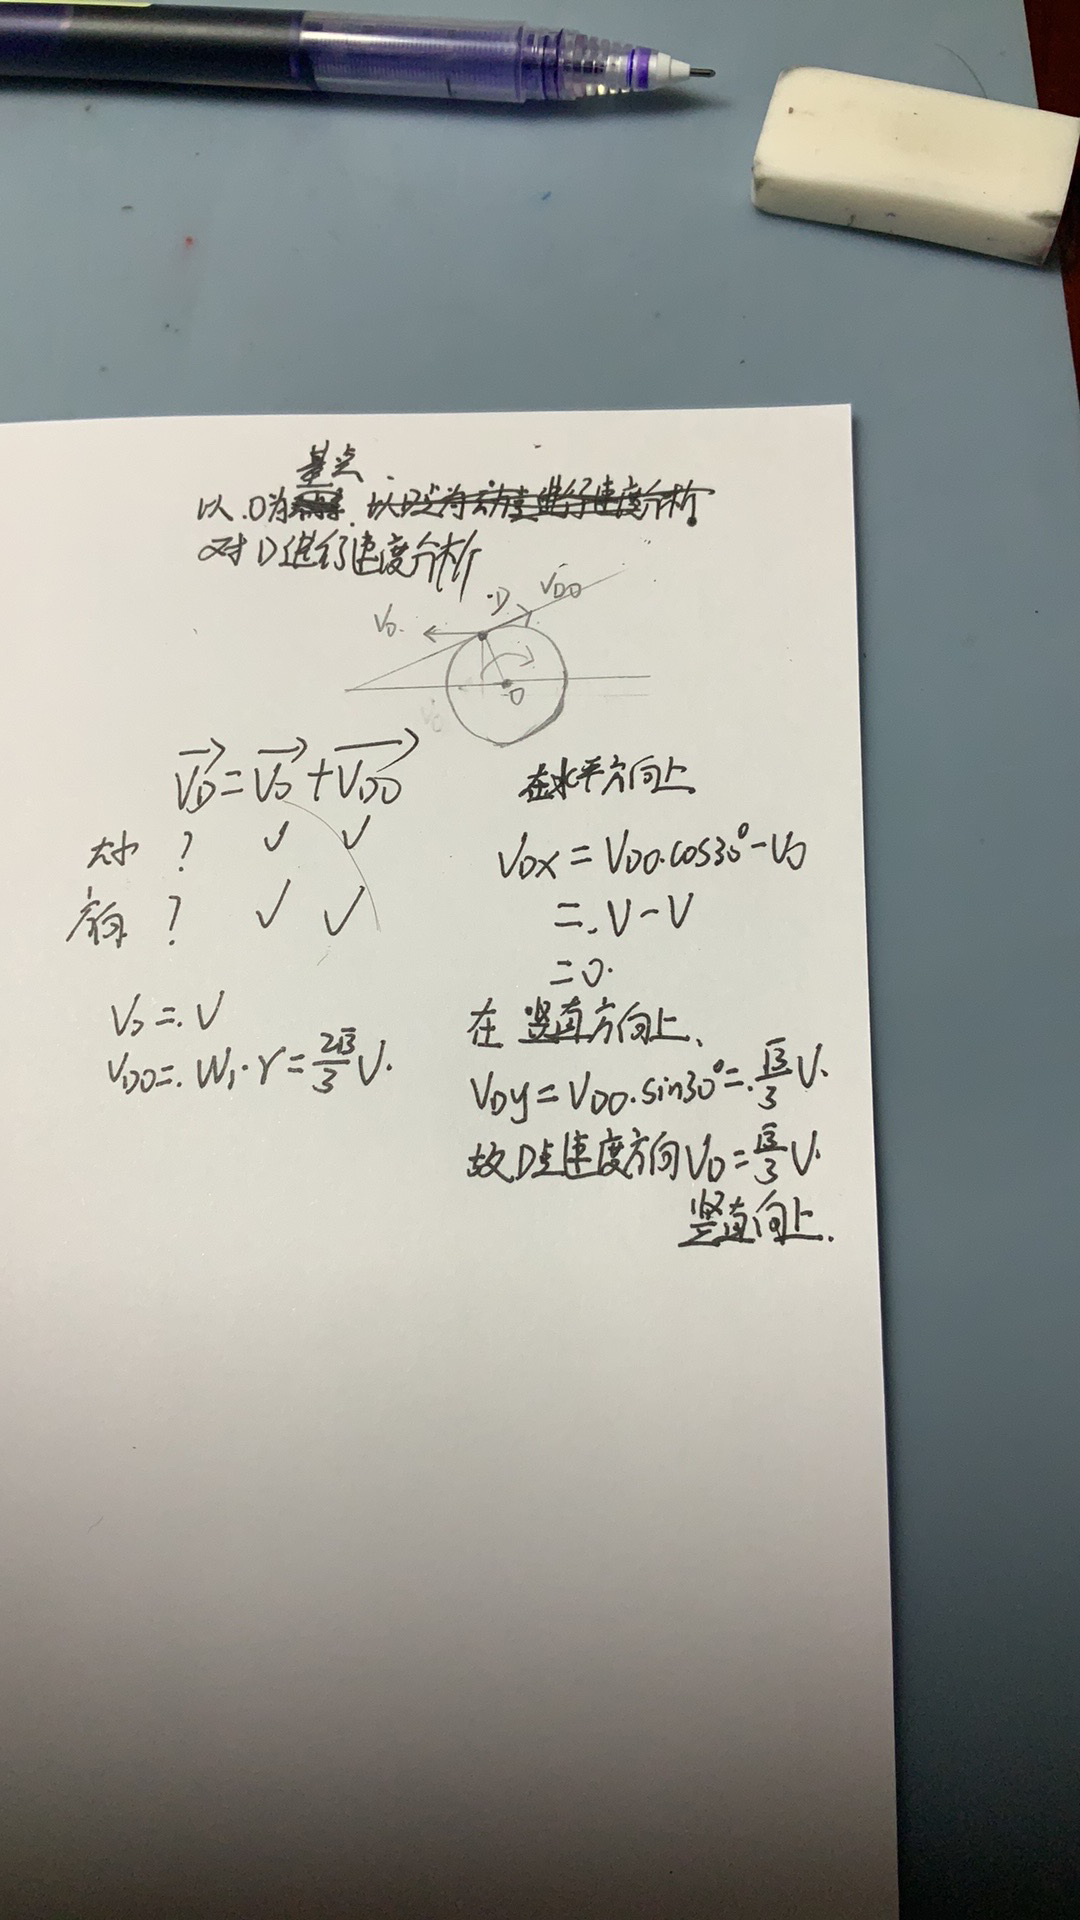 基点
以O为
对D进行速度分析
V₀ D V_DO
O
V_D = V_O + V_DO
大小 ? ✓ ✓
方向 ? ✓ ✓
V_O = V
V_DO = W₁·r = 2√3/3 V.
在水平方向上
V_DX = V_DO·cos30° - V_O
= V - V
= 0.
在竖直方向上、
V_Dy = V_DO·sin30° = √3/3 V.
故D点速度方向V_D = √3/3 V.
竖直向上.